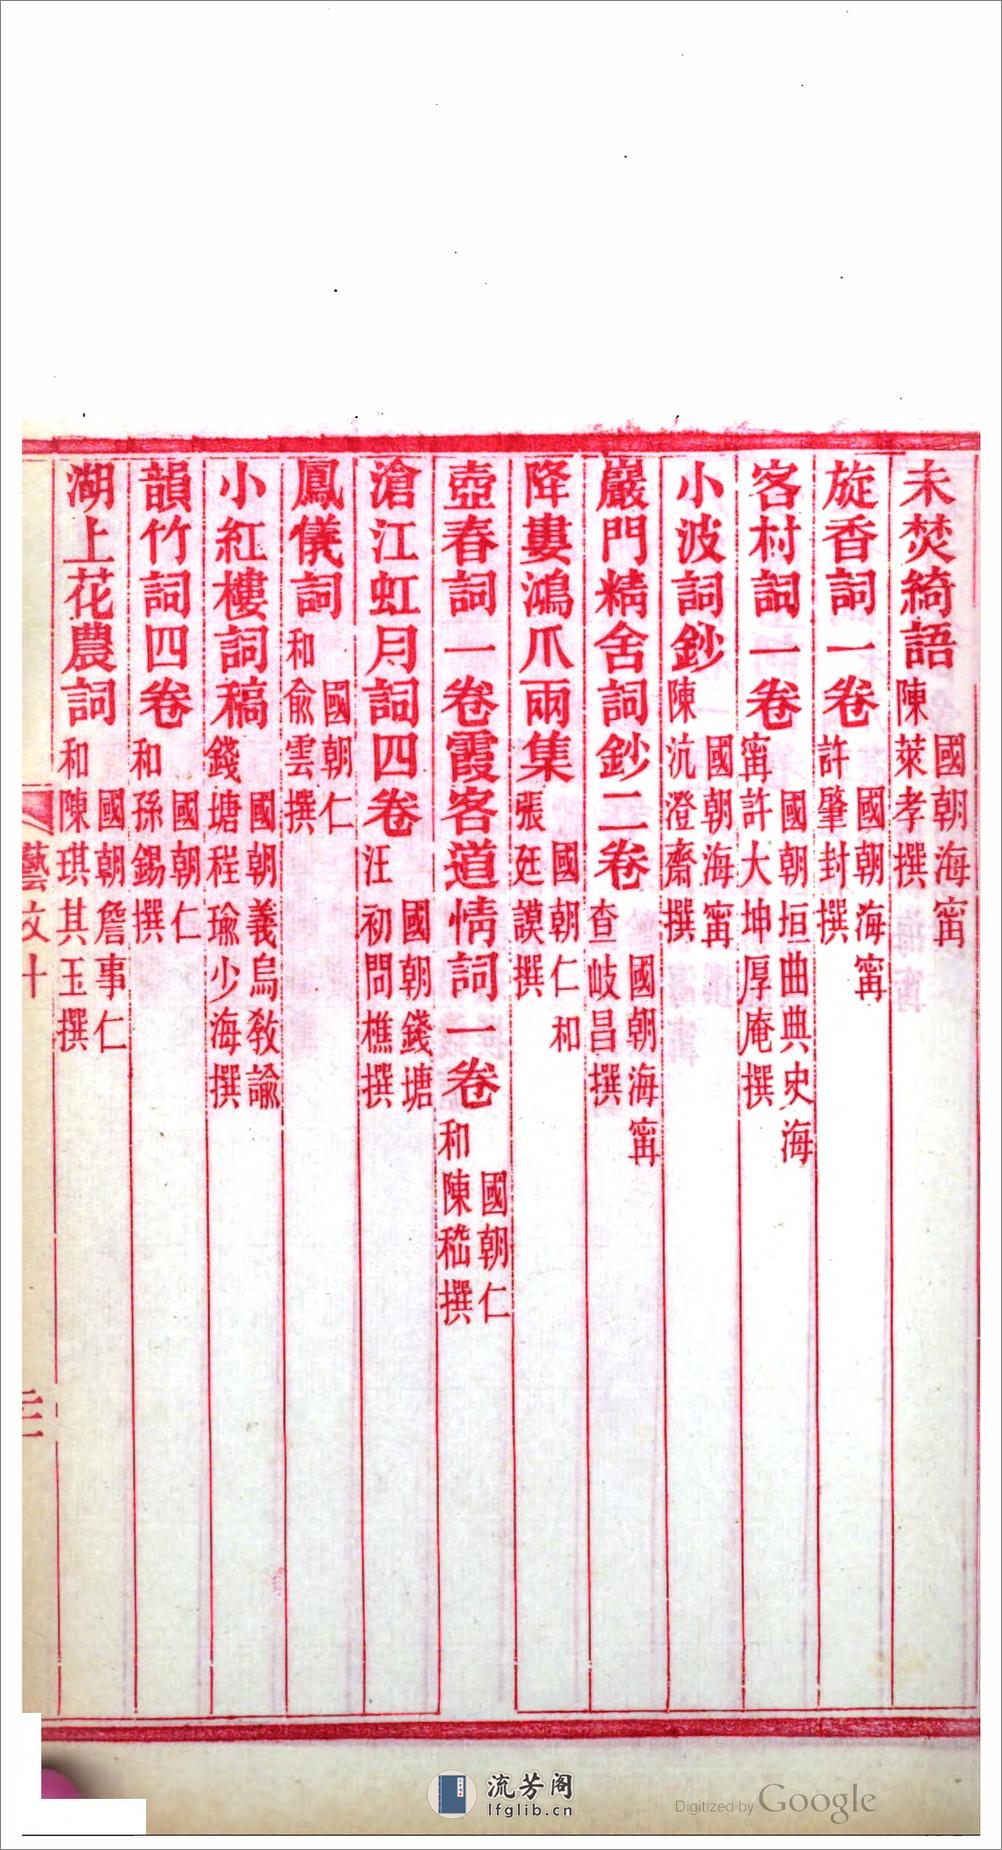 未焚綺語國朝海甯陳萊孝撰
旋香詞一卷國朝海甯許肇封撰
客村詞一卷國朝垣曲典史海甯許大坤厚庵撰
小波詞鈔國朝海甯陳沆澄齋撰
巖門精舍詞鈔二卷國朝海甯查岐昌撰
降婁鴻爪兩集國朝仁和張廷謨撰
壺春詞一卷霞客道情詞一卷國朝仁和陳嵇撰
滄江虹月詞四卷國朝錢塘汪初問樵撰
鳳儀詞國朝仁和俞雲撰
小紅樓詞稿國朝義烏教諭錢塘程瑜少海撰
韻竹詞四卷國朝仁和孫錫撰
湖上花農詞國朝詹事仁和陳琪其玉撰
藝文十
流芳阁
lfglib.cn
Digitized by Google